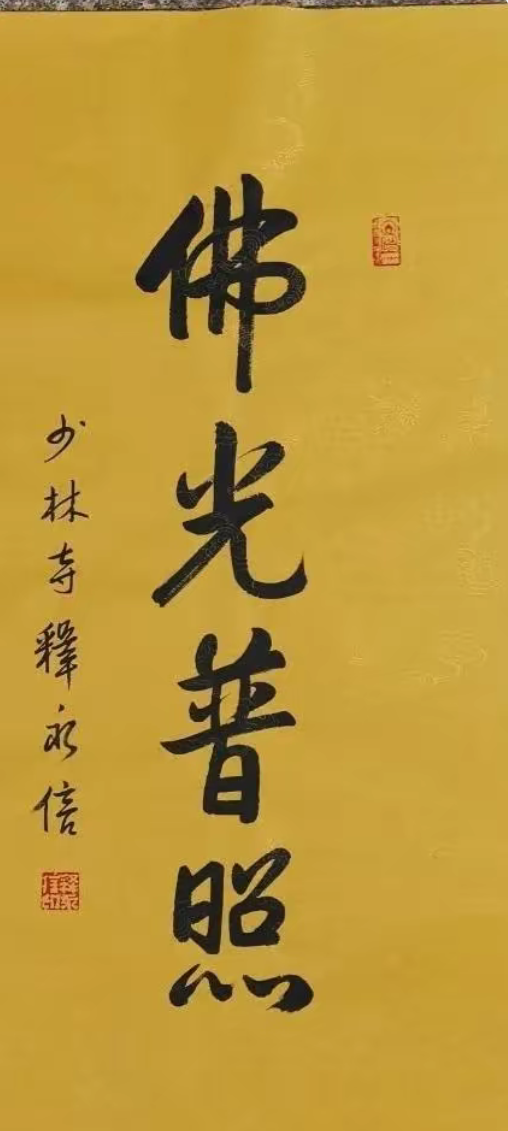 佛光普照
少林寺释永信